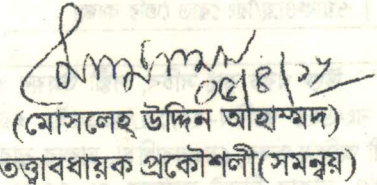 ০৫/৪/১৮
(মোসলেহ্ উদ্দিন আহাম্মদ)
তত্ত্বাবধায়ক প্রকৌশলী(সমন্বয়)